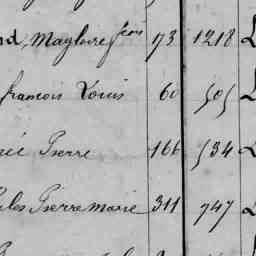 Magloire fcois 73 1218 L
françois Louis 60 505 L
Pierre 166 534 L
Pierre marie 311 747 L